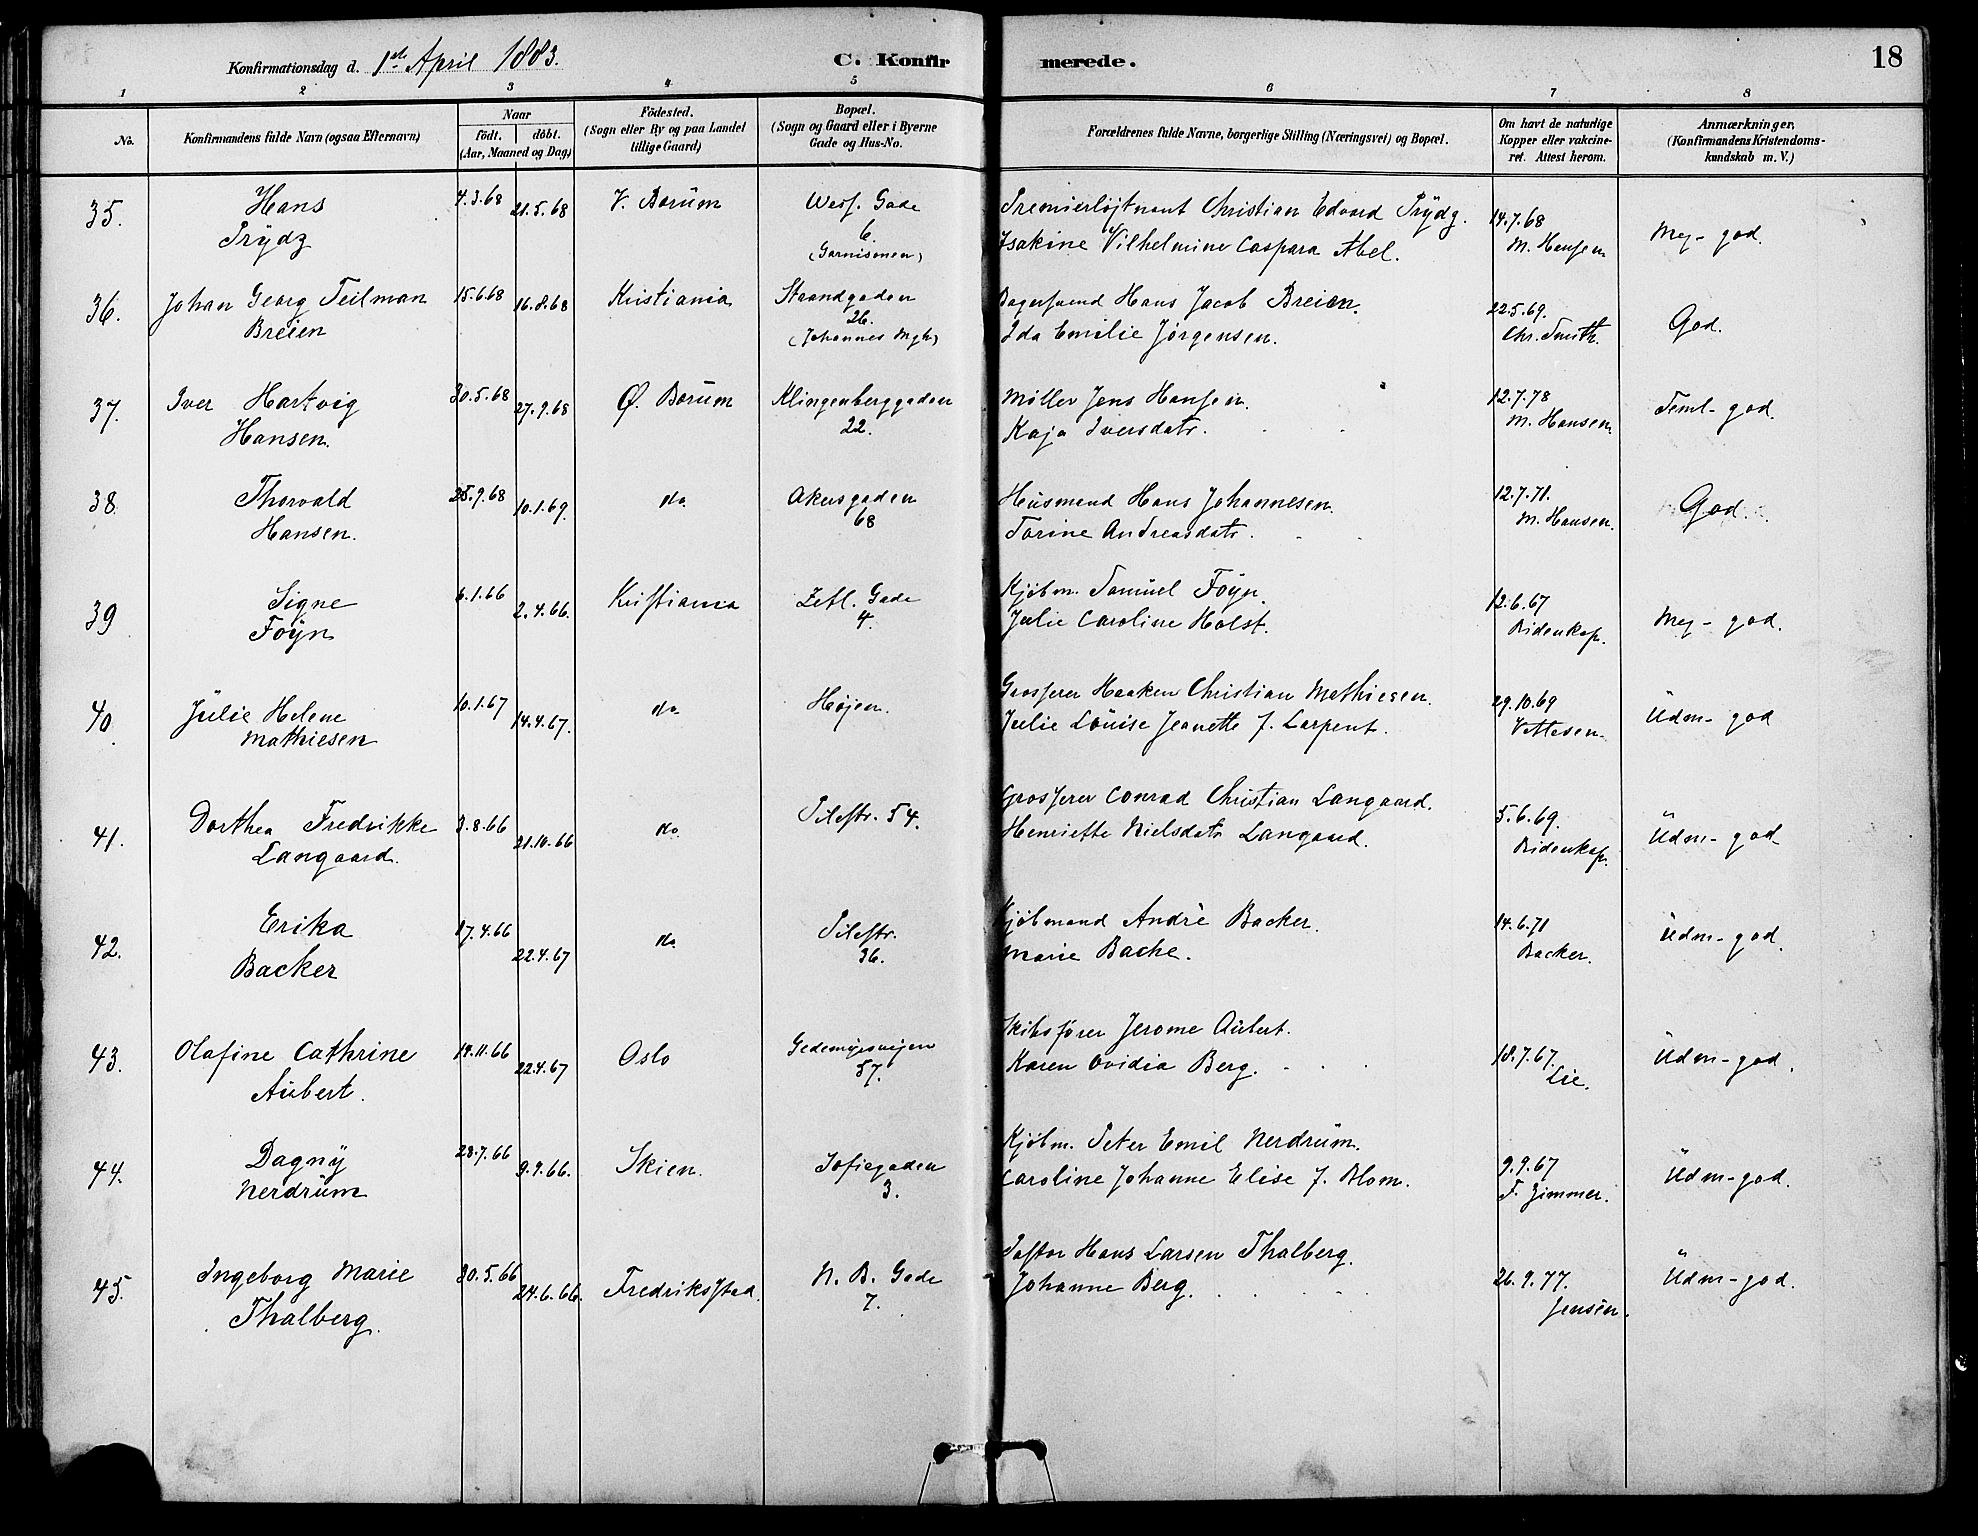 Konfirmationsdag d. 1st April 1883.
C. Konfirmerede.
18
1 2 3 4 5 6 7 8
No.
Konfirmandens fulde Navn (ogsaa Efternavn)
Naar
födt. döbt.
(Aar, Maaned og Dag)
Födested.
(Sogn eller By og paa Landet
tillige Gaard)
Bopæl.
(Sogn og Gaard eller i Byerne
Gade og Hus-No.
Forældrenes fulde Navne, borgerlige Stilling (Næringsvei) og Bopæl.
Om havt de naturlige
Kopper eller vakcine-
ret. Attest herom.
Anmærkninger,
(Konfirmandens Kristendoms-
kundskab m. V.)
35. Hans 4.3.68 21.5.68 V. Bærum Wess. Gade Premierløjtnant Christian Edvard Prydz. 14.7.68 Meg- god.
Prydz 6. Isakine Vilhelmine Caspara Abel. M. Hansen
(Garnisonen)
36. Johan Georg Teilman 15.6.68 16.8.68 Kristiania Strandgaden Bagersvend Hans Jacob Breien. 22.5.69. God.
Breien 26. Ida Emilie Jørgensen. Chr. Smith.
(Johannes Mgh)
37. Iver Hartvig 30.5.68 27.9.68 Ø. Bærum Klingenberggaden Møller Jens Hansen. 12.7.78 Teml- god.
Hansen. 22. Kaja Iversdatr. M. Hansen.
38 Thorvald 25.9.68 10.1.69. do. Akersgaden Husmand Hans Johannesen. 12.7.71. God.
Hansen. 68 Torine Andreasdatr. M. Hansen.
39 Signe 6.1.66 2.4.66. Kristiania Zetl. Gade Kjøbm. Samuel Foyn. 12.6.67 Meg- god.
Foyn 4. Julie Caroline Holst. Ridenkap.
40 Julie Helene 10.1.67 14.4.67. do. Højen. Grosserer Haaken Christian Mathiesen. 29.10.69 Udm- god
Mathiesen Julie Louise Jeanette f. Larpent. Vettesen.
41. Dorthea Fredrikke 3.8.66 21.10.66 do. Pilestr. 54. Grosserer Conrad Christian Langaard. 5.6.69. Udm- god
Langaard. Henriette Nielsdatr Langaard. Ridenkap.
42. Erika 17.4.66 22.4.67 do. Pilestr. Kjøbmand Andrè Backer. 14.6.71 Udm- god.
Backer 36. Marie Bache. Backer.
43. Olafine Cathrine 14.11.66 22.4.67 Oslo Gedemyrsvejen Skibsfører Jerome Aubert. 18.7.67. Udm- god.
Aubert. 57. Karen Ovidia Berg. Lie.
44. Dagny 28.7.66 9.9.66. Skien. Sofiegaden Kjøbm. Peter Emil Nerdrum. 9.9.67 Udm- god.
Nerdrum 3. Caroline Johanne Elise f. Blom. F. Zimmer.
45. Ingeborg Marie 30.5.66 24.6.66. Fredriksstad. N. B. Gade Pastor Hans Larsen Thalberg. 26.9.77. Udm- god.
Thalberg. 7. Johanne Berg. Jensen.